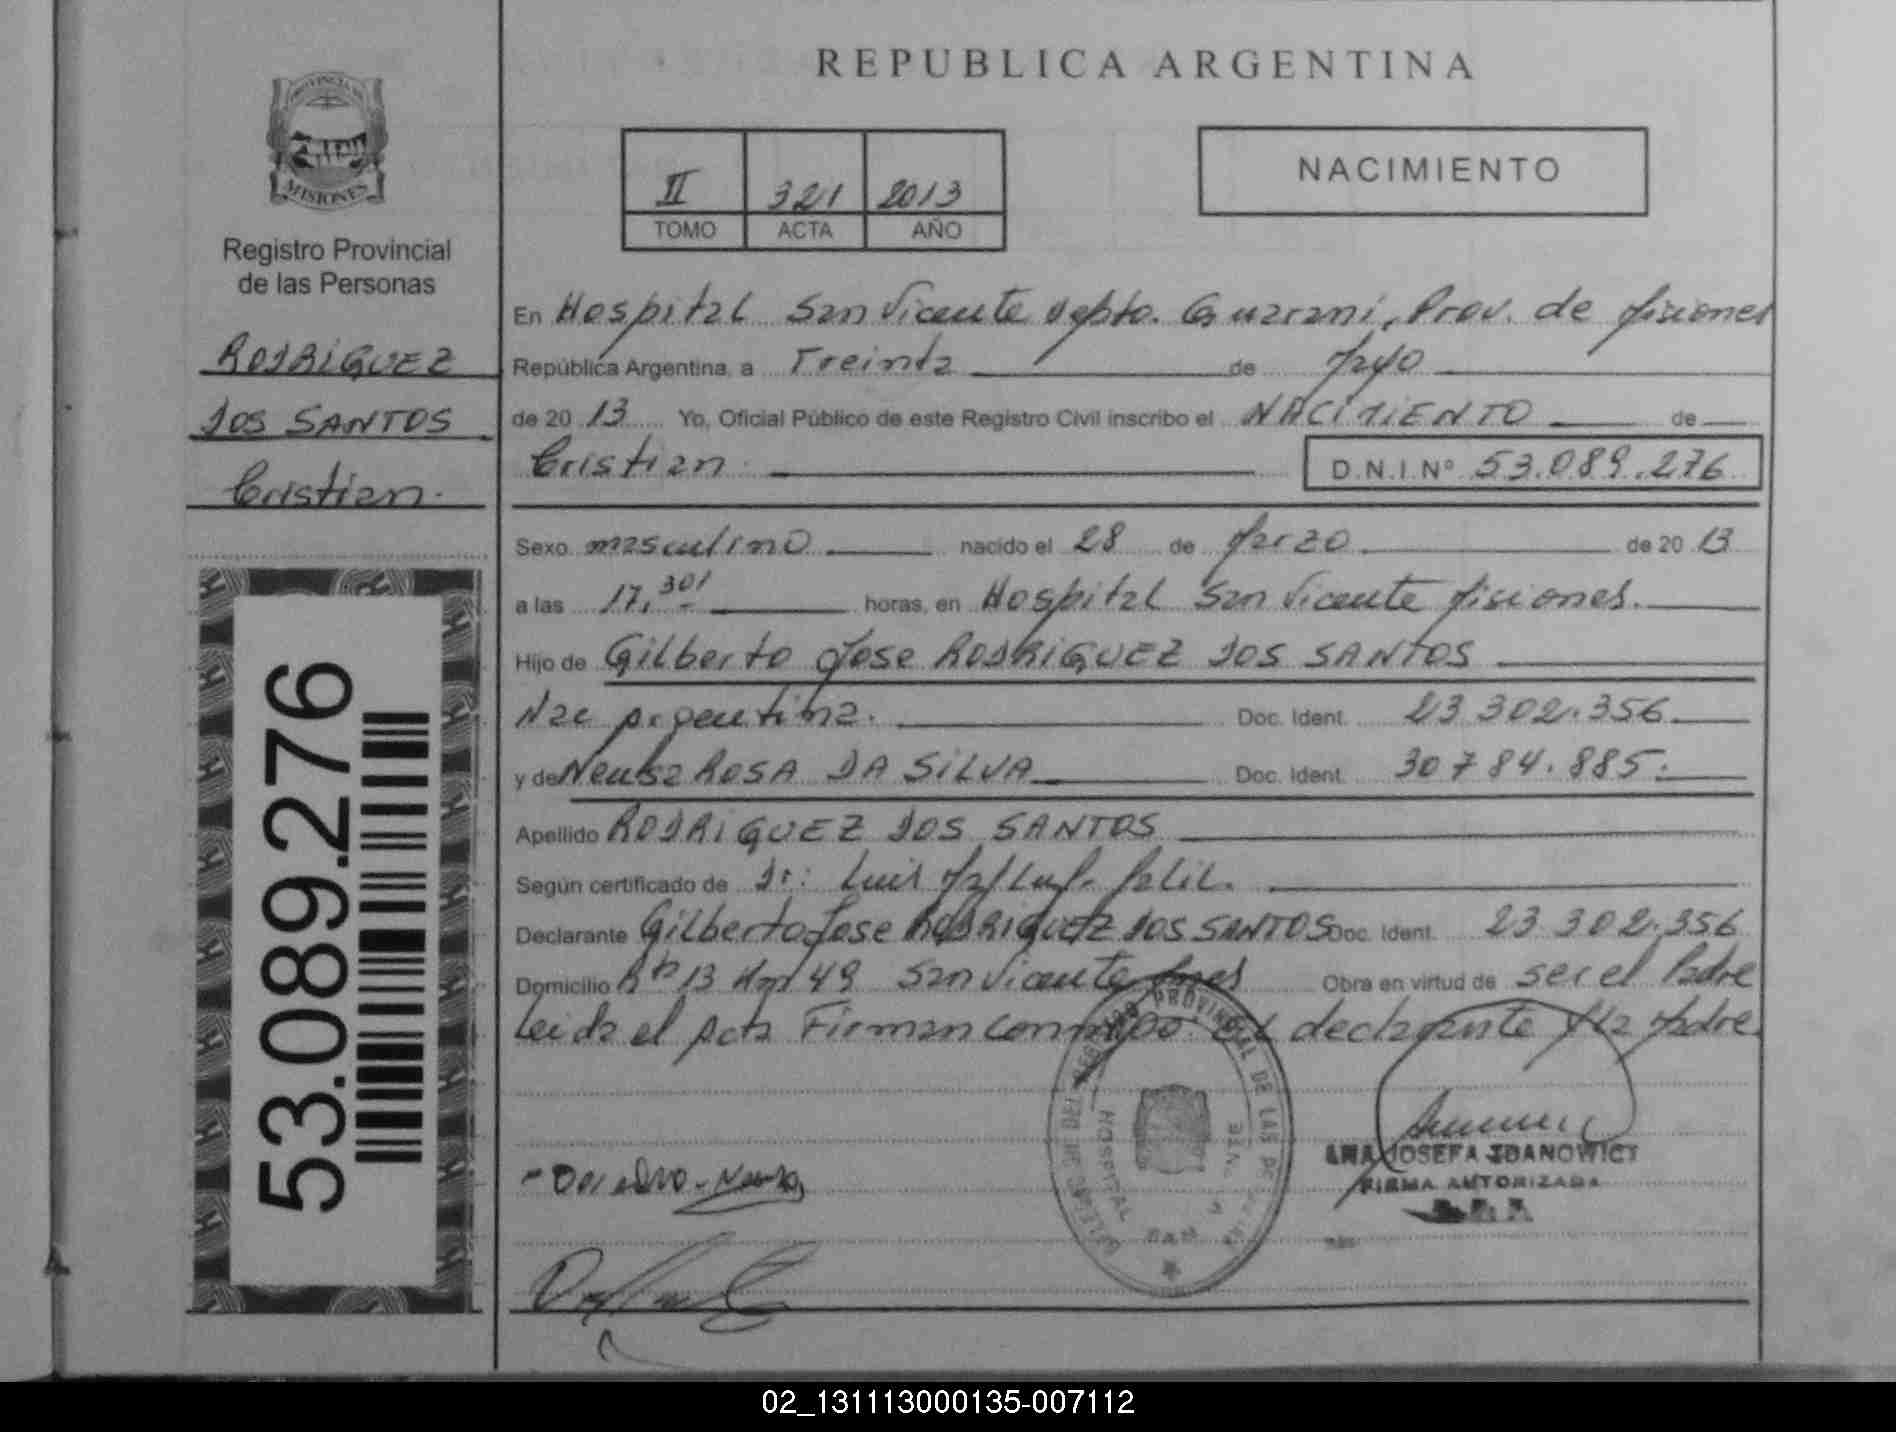 REPUBLICA ARGENTINA
PROVINCIA DE
MISIONES
Registro Provincial
de las Personas
RODRIGUEZ
DOS SANTOS
Cristian.
53.089.276
II 321 2013
TOMO ACTA AÑO
NACIMIENTO
En Hospital San Vicente Depto. Guarani, Prov. de Misiones
República Argentina, a Treinta de Mayo
de 20 13 Yo, Oficial Público de este Registro Civil inscribo el NACIMIENTO de
Cristian. D.N.I.Nº 53.089.276
Sexo masculino nacido el 28 de Marzo de 20 13
a las 17,30' horas, en Hospital San Vicente Misiones.
Hijo de Gilberto Jose RODRIGUEZ DOS SANTOS
Nac Argentina. Doc. Ident. 23 302.356
y de Neusa ROSA DA SILVA Doc. Ident. 30 784.885.
Apellido RODRIGUEZ DOS SANTOS
Según certificado de Dr: Luis
Declarante Gilberto Jose RODRIGUEZ DOS SANTOS Doc. Ident. 23 302.356
Domicilio 13 Km 49 San Vicente Mnes Obra en virtud de ser el Padre
Leida el Acta Firman conmigo el declarante y la Madre.
PROVINCIAL DE LAS
HOSPITAL SAN
ANA JOSEFA ZDANOWICZ
FIRMA AUTORIZADA
02_131113000135-007112